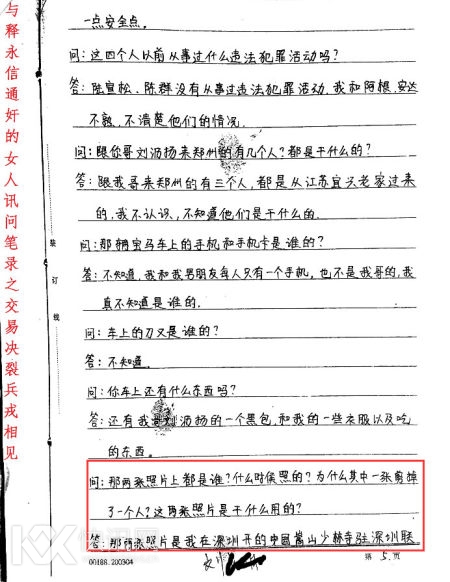 与释永信通奸的女人讯问笔录之交易决裂兵戎相见
装订线
一点安全点。
问:这四个人以前从事过什么违法犯罪活动吗?
答:陈宣松、陈群没有从事过违法犯罪活动,我和阿根,安达
不熟,不清楚他们的情况.
问:跟你哥刘沥扬来郑州的有几个人?都是干什么的?
答:跟我哥来郑州的有三个人,都是从江苏宜兴老家过来
的,我不认识,不知道他们是干什么的
问:那辆宝马车上的手机和手机卡是谁的?
答:不知道,我和我男朋友每人只有一个手机,也不是我哥的,我
真不知道是谁的.
问:车上的刀又是谁的?
答:不知道.
问:你车上还有什么东西吗?
答:还有我哥刘沥扬的一个黑包,和我的一些衣服以及吃
的东西.
问:那两张照片上都是谁?什么时候照的?为什么其中一张剪掉
了一个人?这两张照片是干什么用的?
答:那两张照片是我在深圳开的中国嵩山少林寺驻深圳联
00188.200304
第5页